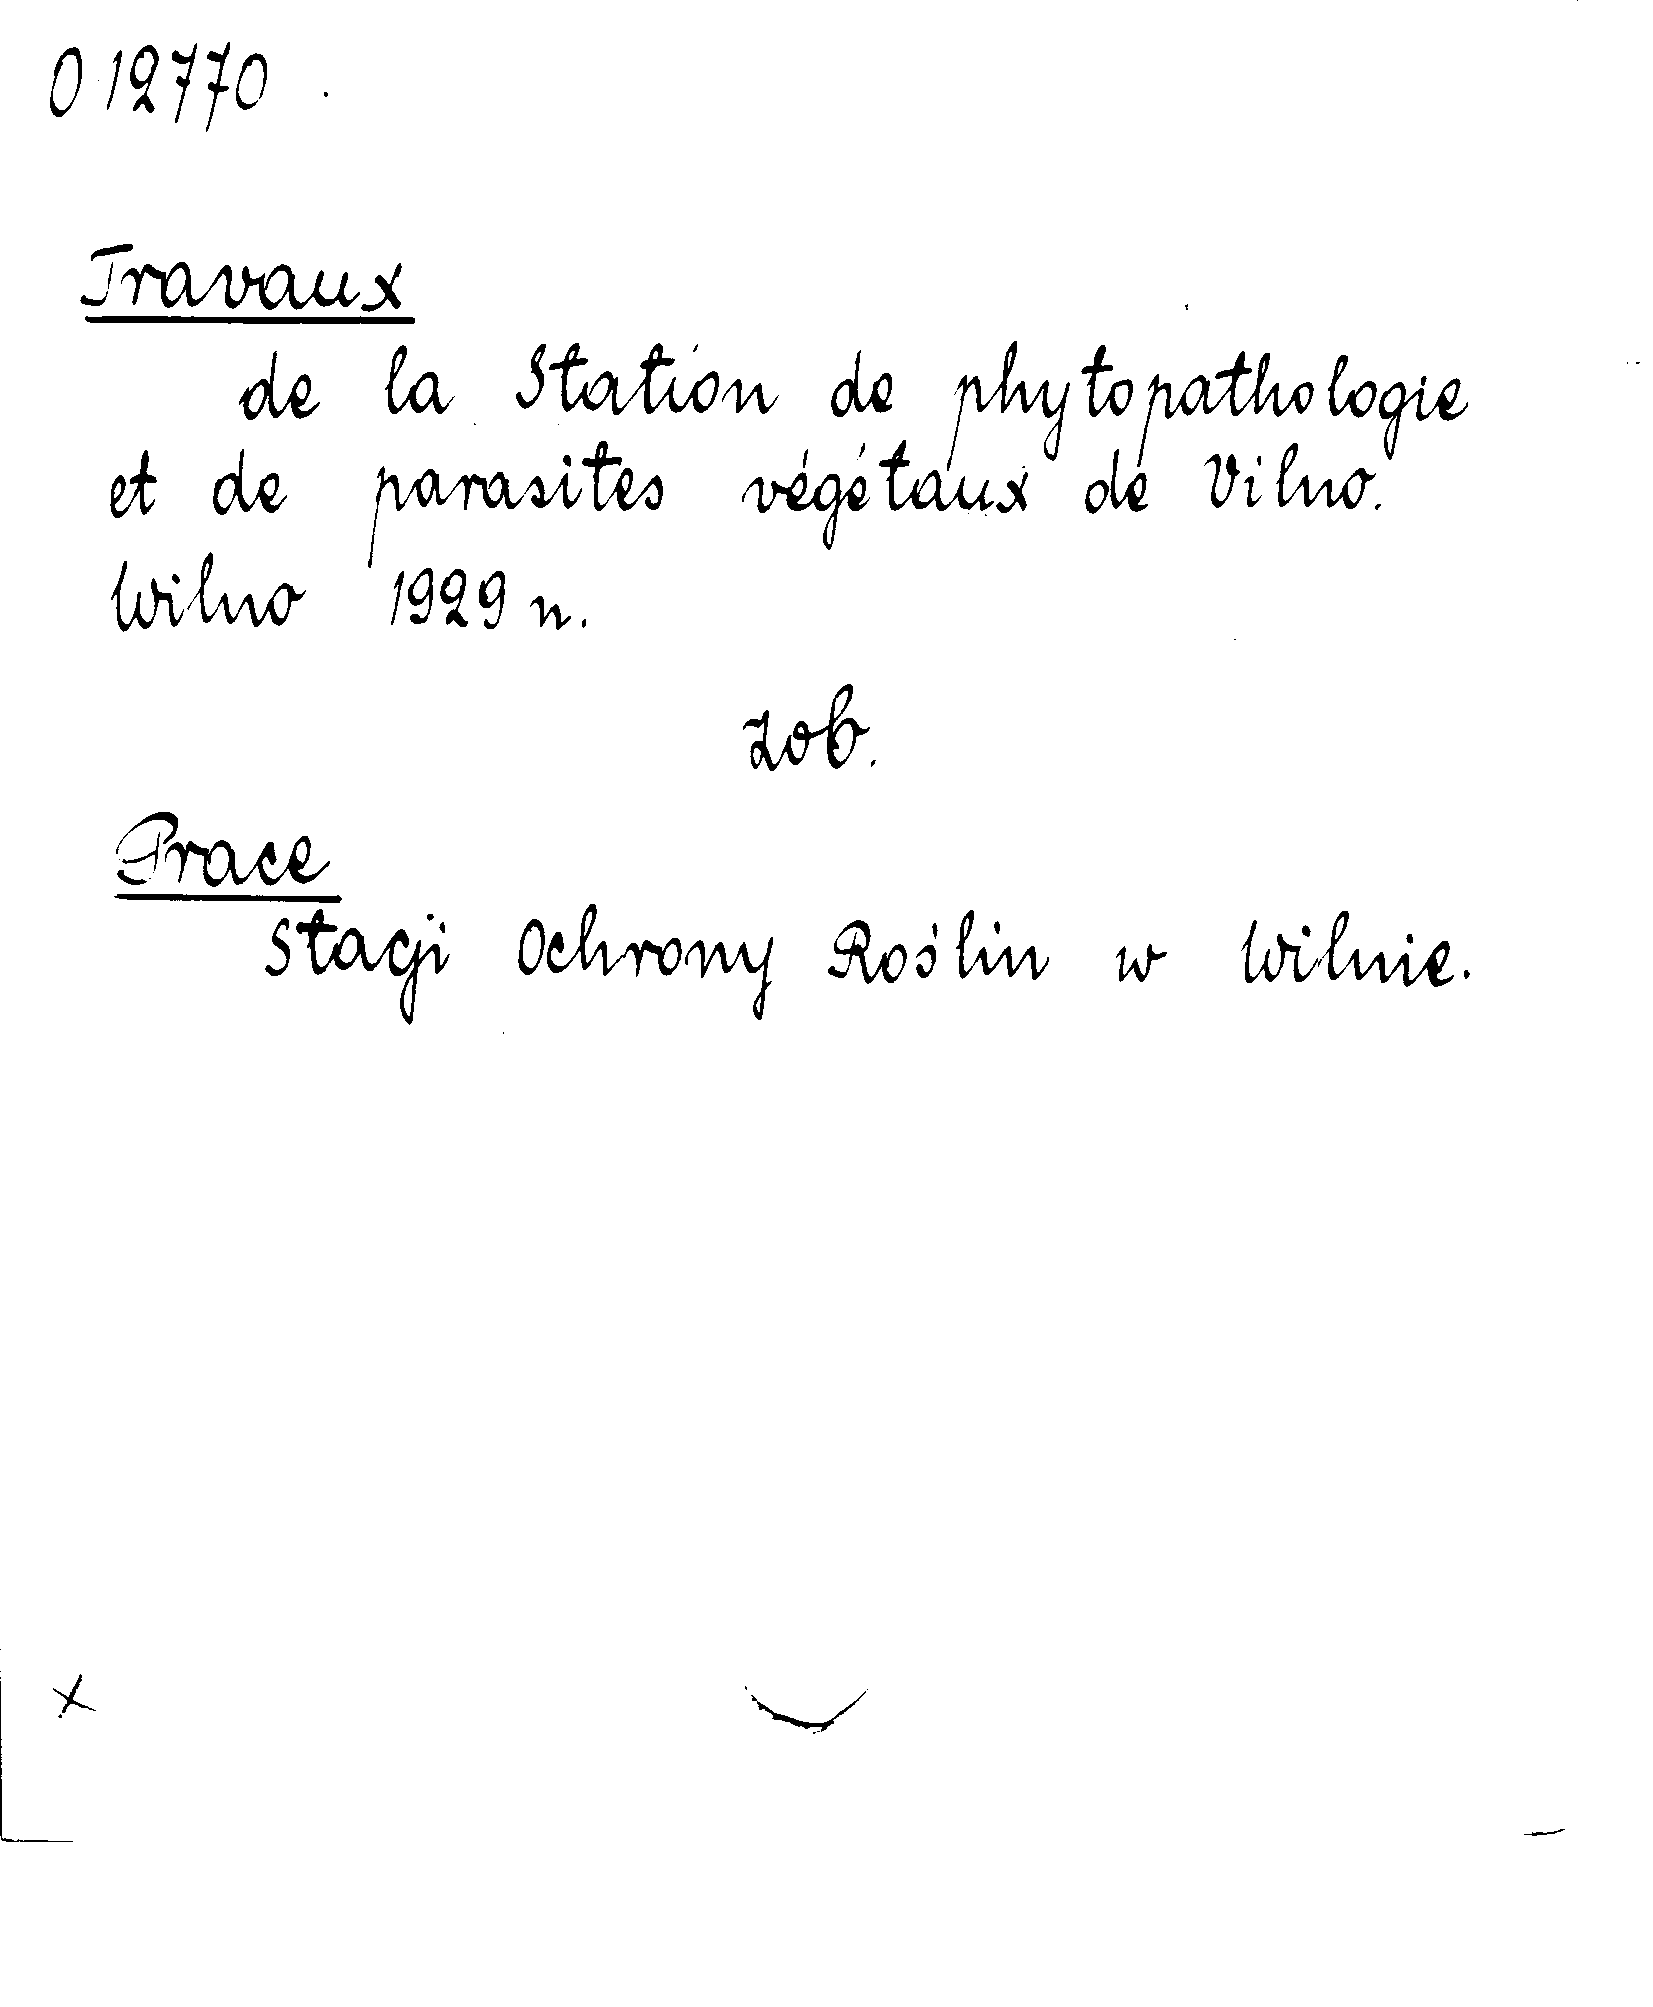 0 12770
Travaux
de la Station de phytopathologie
et de parasites végétaux de Vilno.
Wilno 1929 n.
zob.
Prace
Stacji Ochrony Roślin w Wilnie.
x